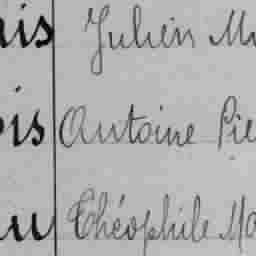 ais Julien M
ois Antoine Pie
au Théophile Ma